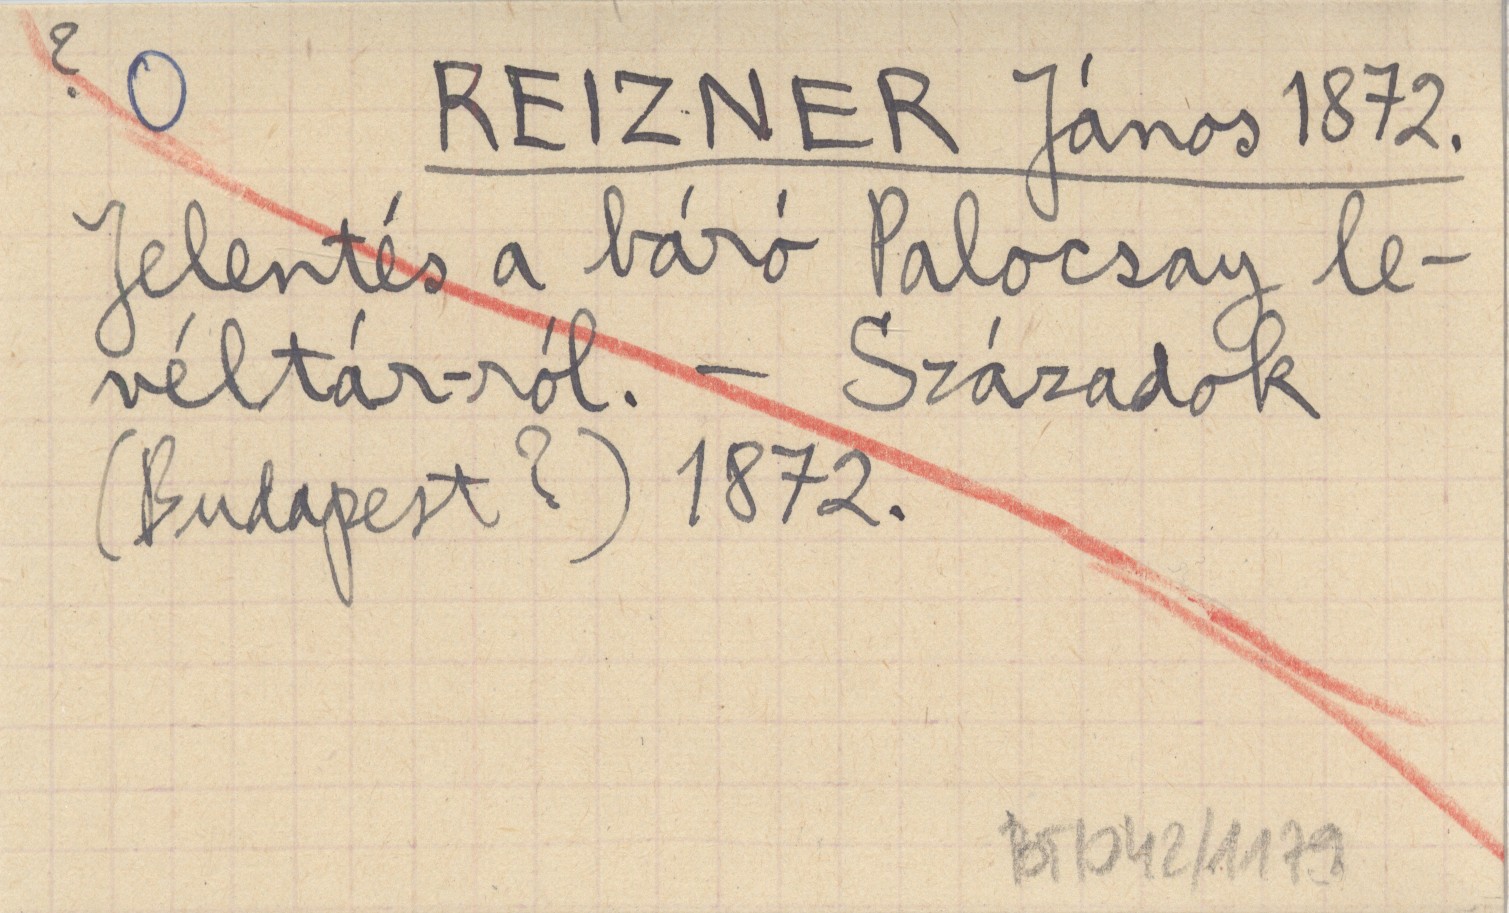 ? O REIZNER János 1872.
Jelentés a báró Palocsay le-
véltár-ról. – Századok
(Budapest?) 1872.